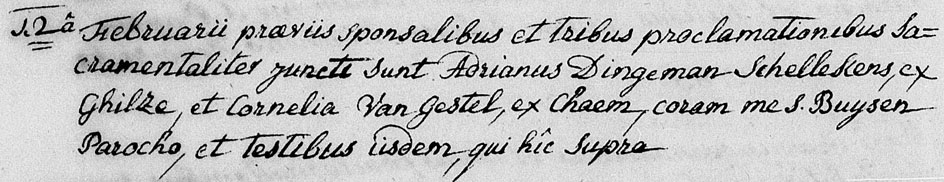 J. 2â Februarii præviis sponsalibus et tribus proclamationibus Sa=
cramentaliter juncti sunt Adrianus Dingeman Schellekens, ex
Ghilze, et Cornelia Van Gestel, ex Chaem, coram me J. Buysen
Parocho, et testibus iisdem, qui hîc supra